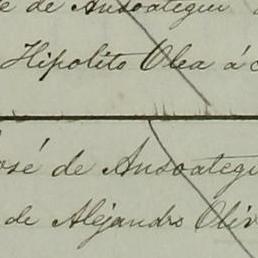 de Ansoategui
Hipolito Olea á
José de Ansoategu
de Alejandro Oliv